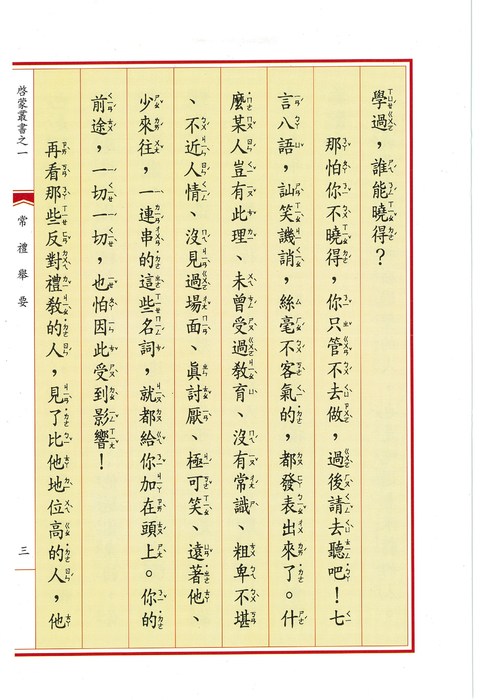 學過，誰能曉得？
那怕你不曉得，你只管不去做，過後請去聽吧！七
言八語，訕笑譏誚，絲毫不客氣的，都發表出來了。什
麼某人豈有此理、未曾受過教育、沒有常識、粗卑不堪
、不近人情、沒見過場面、真討厭、極可笑、遠著他、
少來往，一連串的這些名詞，就都給你加在頭上。你的
前途，一切一切，也怕因此受到影響！
再看那些反對禮教的人，見了比他地位高的人，他
啓蒙叢書之一
常禮舉要
三